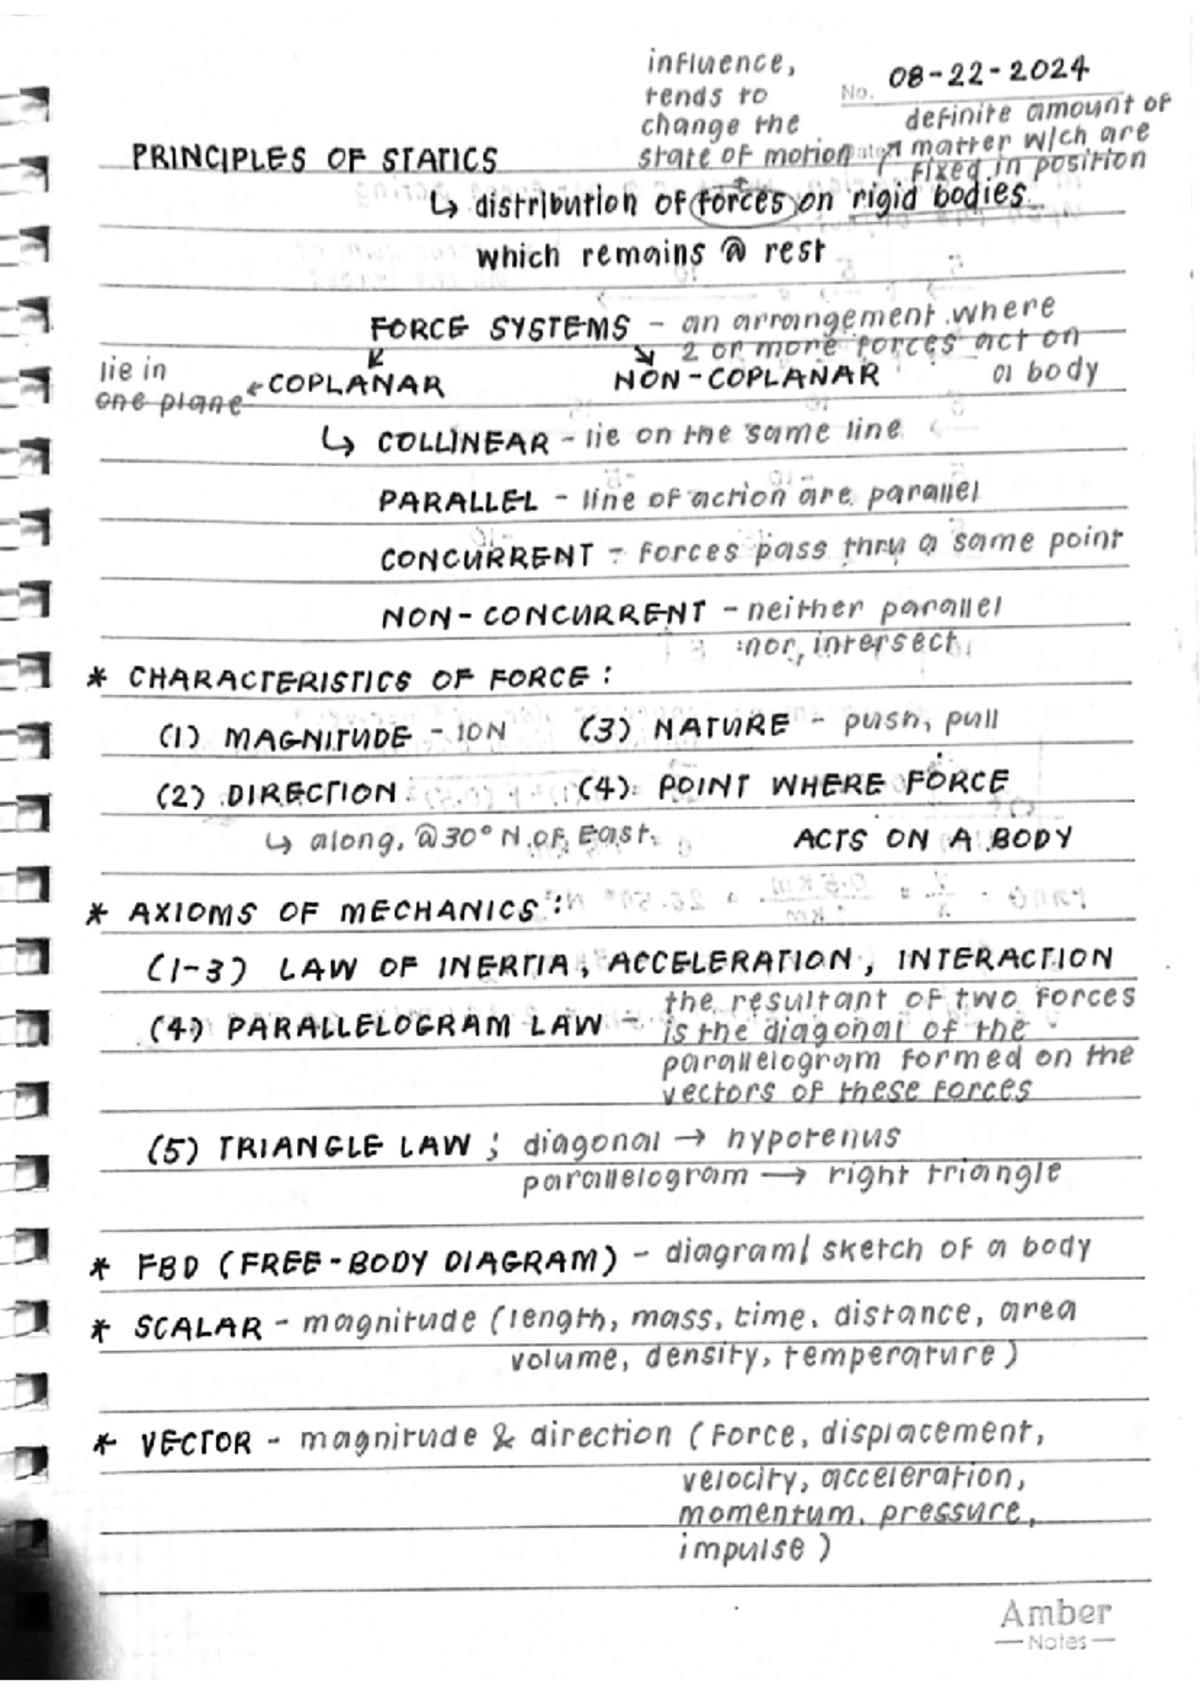 influence,
tends to
change the
state of motion
No. 08-22-2024
definite amount of
matter w/ch are
fixed in position
PRINCIPLES OF STATICS
↳ distribution of forces on rigid bodies
which remains @ rest
FORCE SYSTEMS - an arrangement where
2 or more forces act on
a body
lie in
one plane
← COPLANAR
NON-COPLANAR
↳ COLLINEAR - lie on the same line
PARALLEL - line of action are parallel
CONCURRENT - forces pass thru a same point
NON-CONCURRENT - neither parallel
nor intersect
* CHARACTERISTICS OF FORCE:
(1) MAGNITUDE - 10N (3) NATURE - push, pull
(2) DIRECTION (4) POINT WHERE FORCE
↳ along, @30° N of East. ACTS ON A BODY
* AXIOMS OF MECHANICS:
(1-3) LAW OF INERTIA, ACCELERATION, INTERACTION
(4) PARALLELOGRAM LAW - the resultant of two forces
is the diagonal of the
parallelogram formed on the
vectors of these forces
(5) TRIANGLE LAW ; diagonal → hypotenus
parallelogram → right triangle
* FBD (FREE-BODY DIAGRAM) - diagram/ sketch of a body
* SCALAR - magnitude (length, mass, time, distance, area
volume, density, temperature)
* VECTOR - magnitude & direction (force, displacement,
velocity, acceleration,
momentum, pressure,
impulse)
Amber
Notes